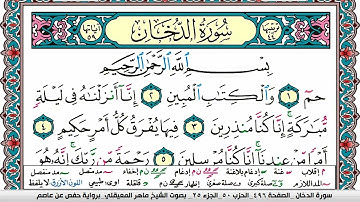 سُورَةُ الدُّخَانِ
بِسْمِ ٱللَّهِ ٱلرَّحْمَٰنِ ٱلرَّحِيمِ
حمٓ ١ وَٱلْكِتَٰبِ ٱلْمُبِينِ ٢ إِنَّآ أَنزَلْنَٰهُ فِى لَيْلَةٍ
مُّبَٰرَكَةٍ إِنَّا كُنَّا مُنذِرِينَ ٣ فِيهَا يُفْرَقُ كُلُّ أَمْرٍ حَكِيمٍ ٤
أَمْرًا مِّنْ عِندِنَآ إِنَّا كُنَّا مُرْسِلِينَ ٥ رَحْمَةً مِّن رَّبِّكَ إِنَّهُۥ هُوَ
سورة الدخان الصفحة ٤٩٦ الحزب ٥٠ الجزء ٢٥ بصوت الشيخ ماهر المعيقلي برواية حفص عن عاصم